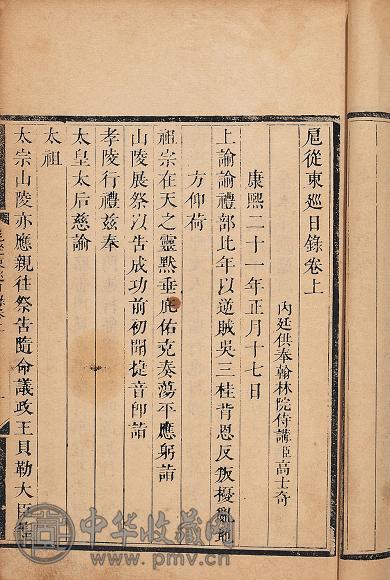 扈從東巡日錄卷上
內廷供奉翰林院侍講臣高士奇
康熙二十一年正月十七日
上諭諭禮部比年以逆賊吳三桂背恩反叛擾亂地
方仰荷
祖宗在天之靈默垂庇佑克奏蕩平應躬詣
山陵展祭以告成功前初聞捷音即詣
孝陵行禮茲奉
太皇太后慈諭
太祖
太宗山陵亦應親往祭告隨命議政王貝勒大臣
中华收藏网
www.pmv.cn